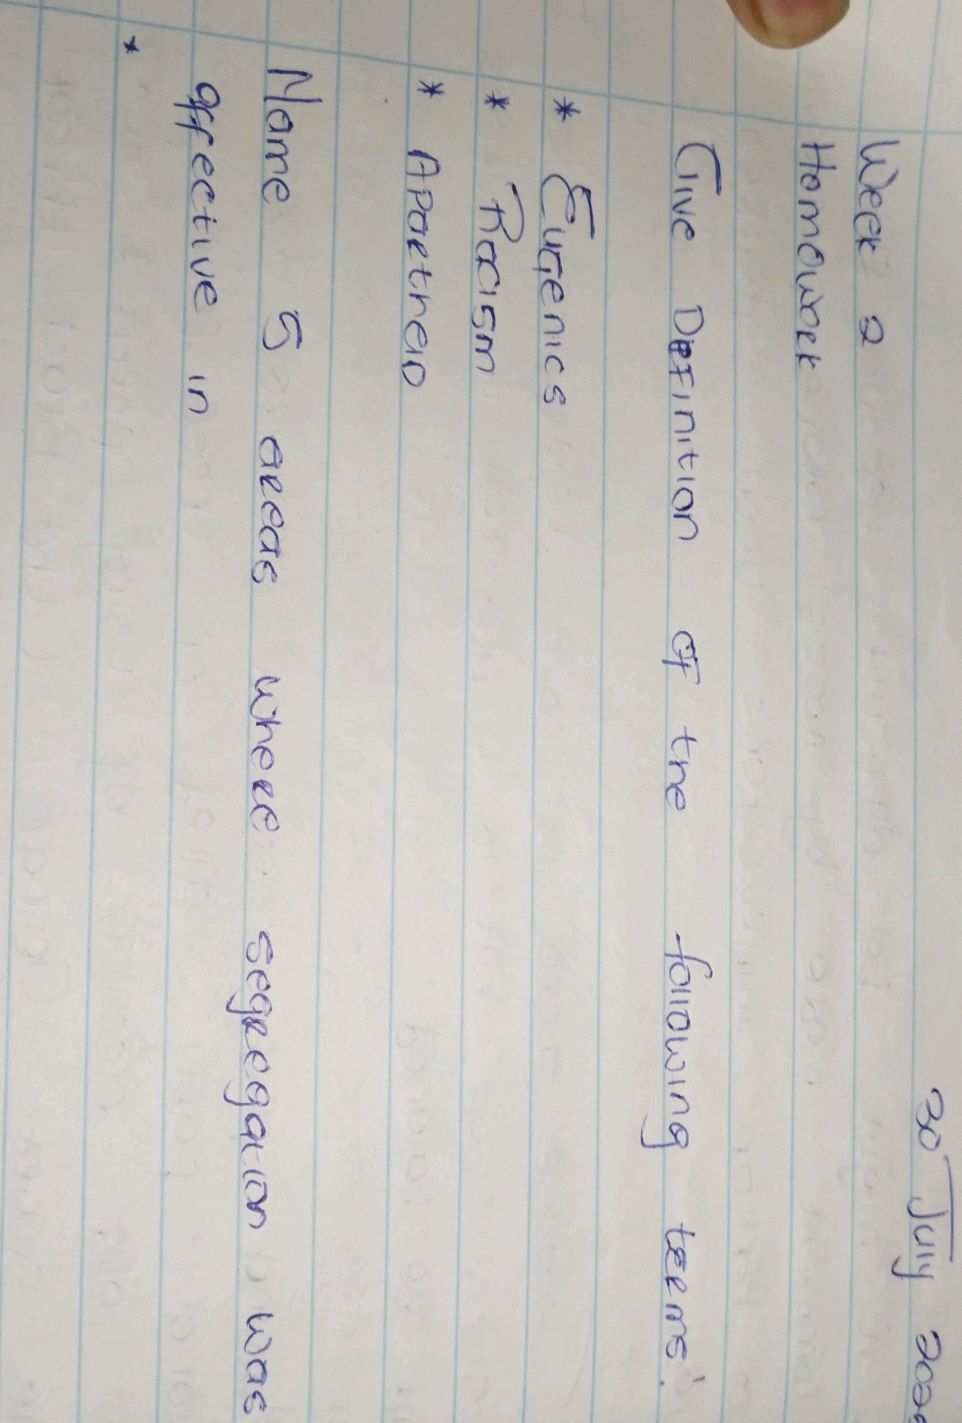 30 July
Week 2
Homework
Give Definition of the following terms:
* Eugenics
* Racism
* Apartheid
Name 5 areas where segregation was
affective in
*